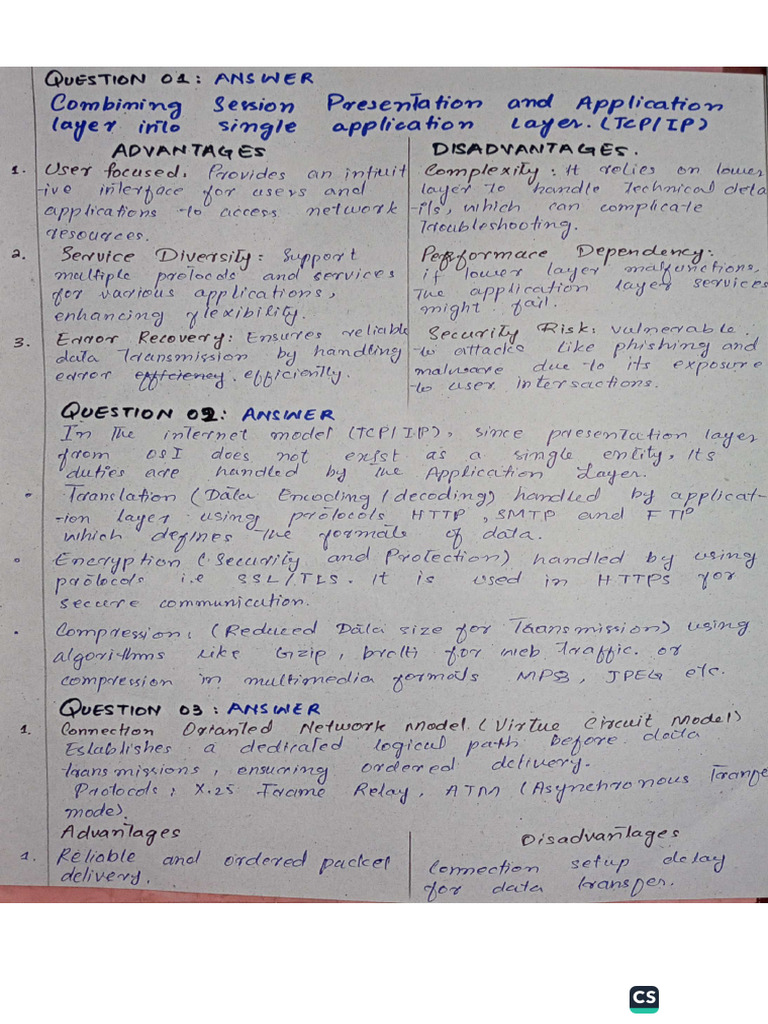 QUESTION 01: ANSWER
Combining Session Presentation and Application
layer into single application Layer. (TCP/IP)
ADVANTAGES
1. User focused. Provides an intuit
-ive interface for users and
applications to access network
resources.
2. Service Diversity: Support
multiple protocols and services
for various applications,
enhancing flexibility.
3. Error Recovery: Ensures reliable
data transmission by handling
error efficiency. efficiently.
DISADVANTAGES.
Complexity: It relies on lower
layer to handle Technical deta
-ils, which can complicate
Troubleshooting.
Performace Dependency:
if lower layer malfunctions,
The application layer services
might fail.
Security Risk: vulnerable.
to attacks like phishing and
malware due to its exposure
to user intersactions.
QUESTION 02: ANSWER
In The internet model (TCP/IP), since presentation layer
from OSI does not exist as a single entity, Its
duties are handled by The Application Layer.
• Translation (Data Encoding/decoding) handled by applicat-
-ion layer using protocols HTTP, SMTP and FTP
which defines The formats of data.
• Encryption (Security and Protection) handled by using
protocols i.e SSL/TLS. It is used in HTTPS for
secure communication.
• Compression: (Reduced Data size for Transmission) using
algorithms like Gzip, brolti for web Traffic. or
compression in multimedia formats MP3, JPEG etc.
QUESTION 03: ANSWER
1. Connection Orianted Network Model (Virtue Circuit Model)
Establishes a dedicated logical path before data
transmissions, ensuring ordered delivery.
Protocols: X.25 Frame Relay, ATM (Asynchronous Tranfe
mode).
Advantages
1. Reliable and ordered packet
delivery.
Disadvantages
Connection setup delay
for data transfer.
CS